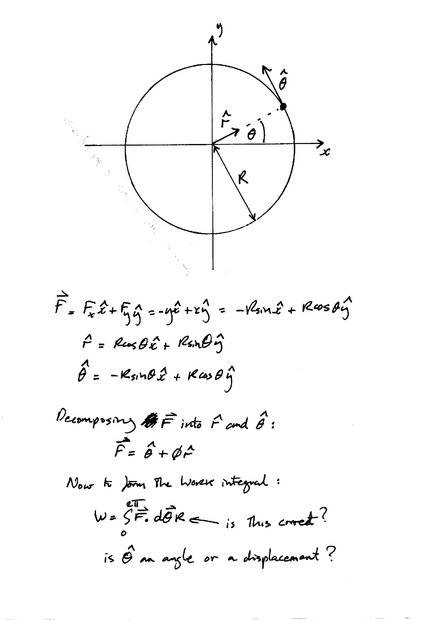 y
θ̂
r̂
θ
x
R
F⃗ = Fₓx̂ + F_yŷ = -yx̂ + xŷ = -Rsinx̂ + Rcosθŷ
r̂ = Rcosθx̂ + Rsinθŷ
θ̂ = -Rsinθx̂ + Rcosθŷ
Decomposing F⃗ into r̂ and θ̂ :
F⃗ = θ̂ + Ør̂
Now to form the work integral :
W = ∫₀²π F⃗ . dθ⃗R ← is this correct?
is θ̂ an angle or a displacement ?